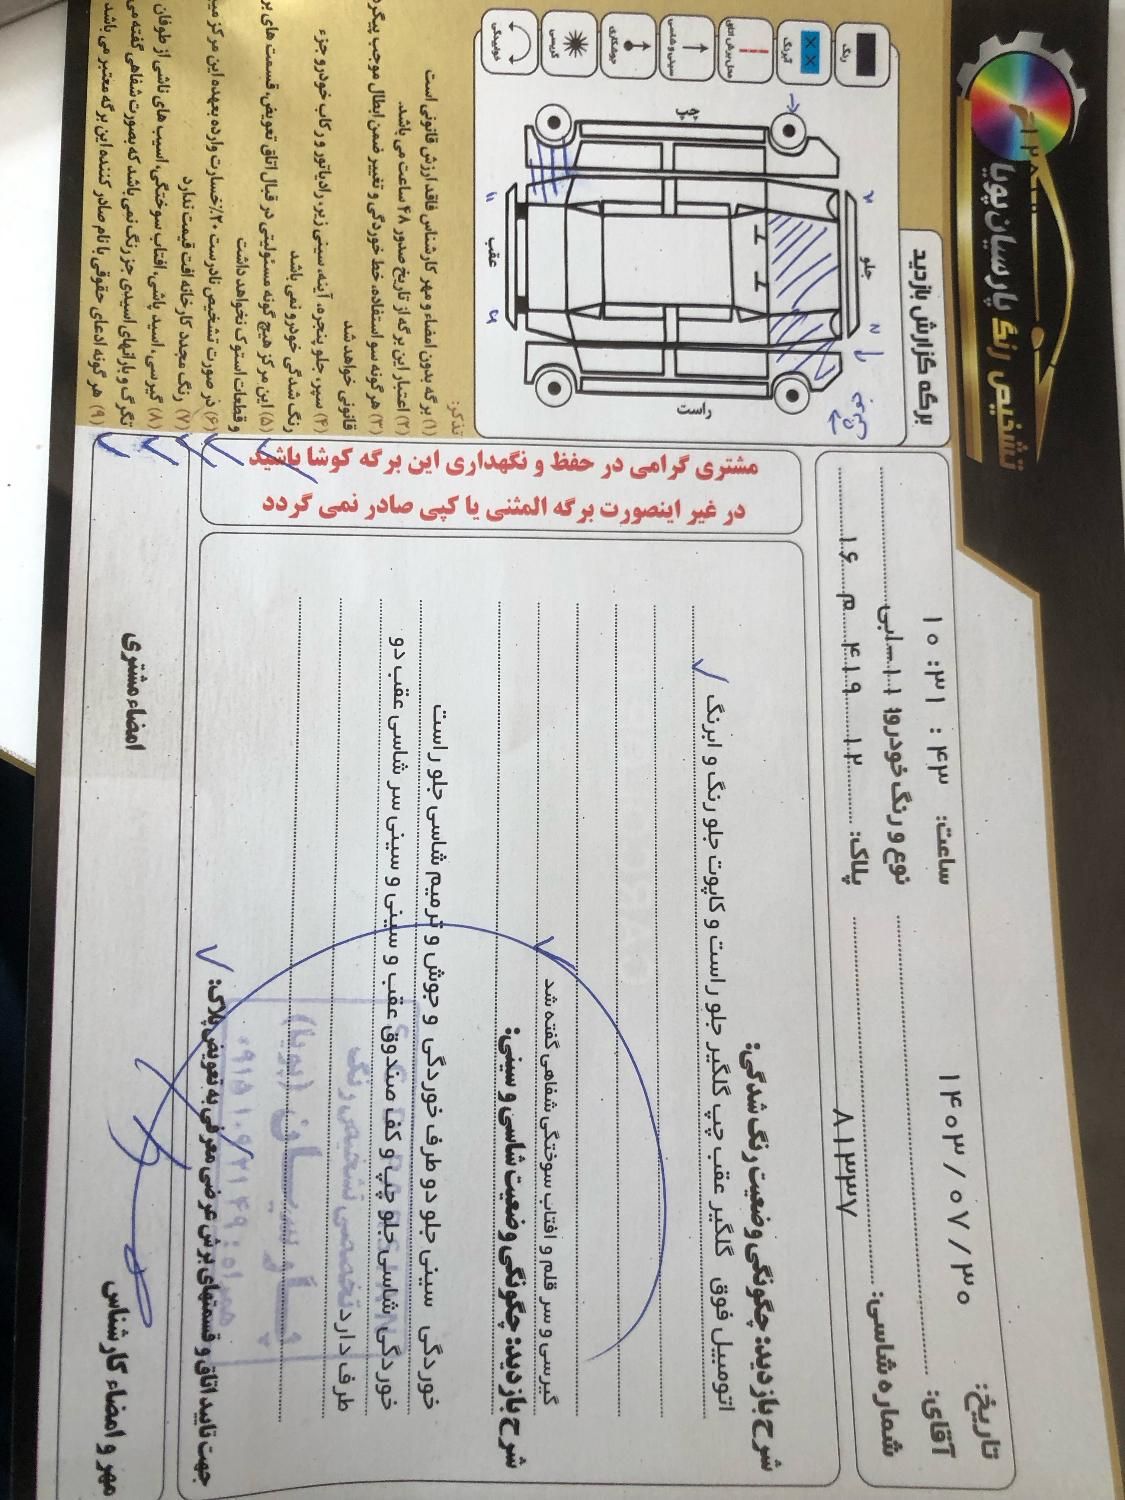 تشخیص رنگ پارسیان پویا
برگه گزارش بازدید
رنگ
آبرنگ
محل برش اتاق
سینی و شاسی
جوشکاری
گریسی
خوابیدگی
جلو
عقب
راست
چپ
جوش
تذکر:
(۱) برگه بدون امضاء و مهر کارشناس فاقد ارزش قانونی است
(۲) اعتبار این برگه از تاریخ صدور ۴۸ ساعت می باشد.
(۳) هرگونه سو استفاده، خط خوردگی و تغییر ضمن ابطال موجب پیگرد
قانونی خواهد شد
(۴) سپر، جلو پنجره، آینه، سینی زیر، رادیاتور و رکاب خودرو جزء
رنگ شدگی خودرو نمی باشد
(۵) این مرکز هیچ گونه مسئولیتی در قبال اتاق تعویض، قسمت های بر
و قطعات استوک نخواهد داشت
(۶) در صورت تشخیص نادرست ۲۰٪ خسارت وارده بعهده این مرکز می
(۷) رنگ مجدد کارخانه افت قیمت ندارد
(۸) گیرسی، اسید پاشی، افتاب سوختگی، اسیب های ناشی از طوفان
تگرگ و بارانهای اسیدی جز رنگ نمی باشد که بصورت شفاهی گفته می
(۹) هر گونه ادعای حقوقی با نام صادر کننده این برگه معتبر می باشد
تاریخ: ۱۴۰۳/۰۷/۳۰
ساعت: ۱۰:۳۱:۴۳
آقای:
نوع و رنگ خودرو:
شماره شاسی: ۸۱۳۳۷
پلاک: ۱۲ ۴۱۹ م ۱۶
مشتری گرامی در حفظ و نگهداری این برگه کوشا باشید
در غیر اینصورت برگه المثنی یا کپی صادر نمی گردد
شرح بازدید: چگونگی وضعیت رنگ شدگی:
اتومبیل فوق گلگیر عقب چپ گلگیر جلو راست و کاپوت جلو رنگ و ابرنگ
گیرسی و سر قلم و افتاب سوختگی شفاهی گفته شد
شرح بازدید: چگونگی وضعیت شاسی و سینی:
خوردگی سینی جلو دو طرف خوردگی و جوش و ترمیم شاسی جلو راست
خوردگی شاسی جلو چپ و کف صندوق عقب و سینی و سینی سر شاسی عقب دو
طرف دارد
تخصصی تشخیص رنگ
پارسیان (پویا)
جهت تایید اتاق و قسمتهای برش عرضی معرفی به تعویض پلاک:
مهر و امضاء کارشناس
امضاء مشتری